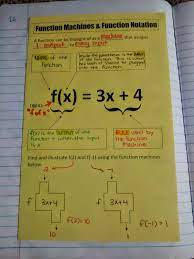 Function Machines & Function Notation
A function can be thought of as a machine that assigns
1 output to every input
NAME of the
function
Inside the parentheses is the INPUT
of the function. This is what
into the function.
f(x) = 3x + 4
"f of x"
f(x) is the OUTPUT of the
function f when the input
is x
RULE used by
the function
machine
Find and illustrate f(2) and f(-1) using the function machines
below.
2
-1
f 3x+4
f 3x+4
f(2)=10
f(-1)=1
10
1